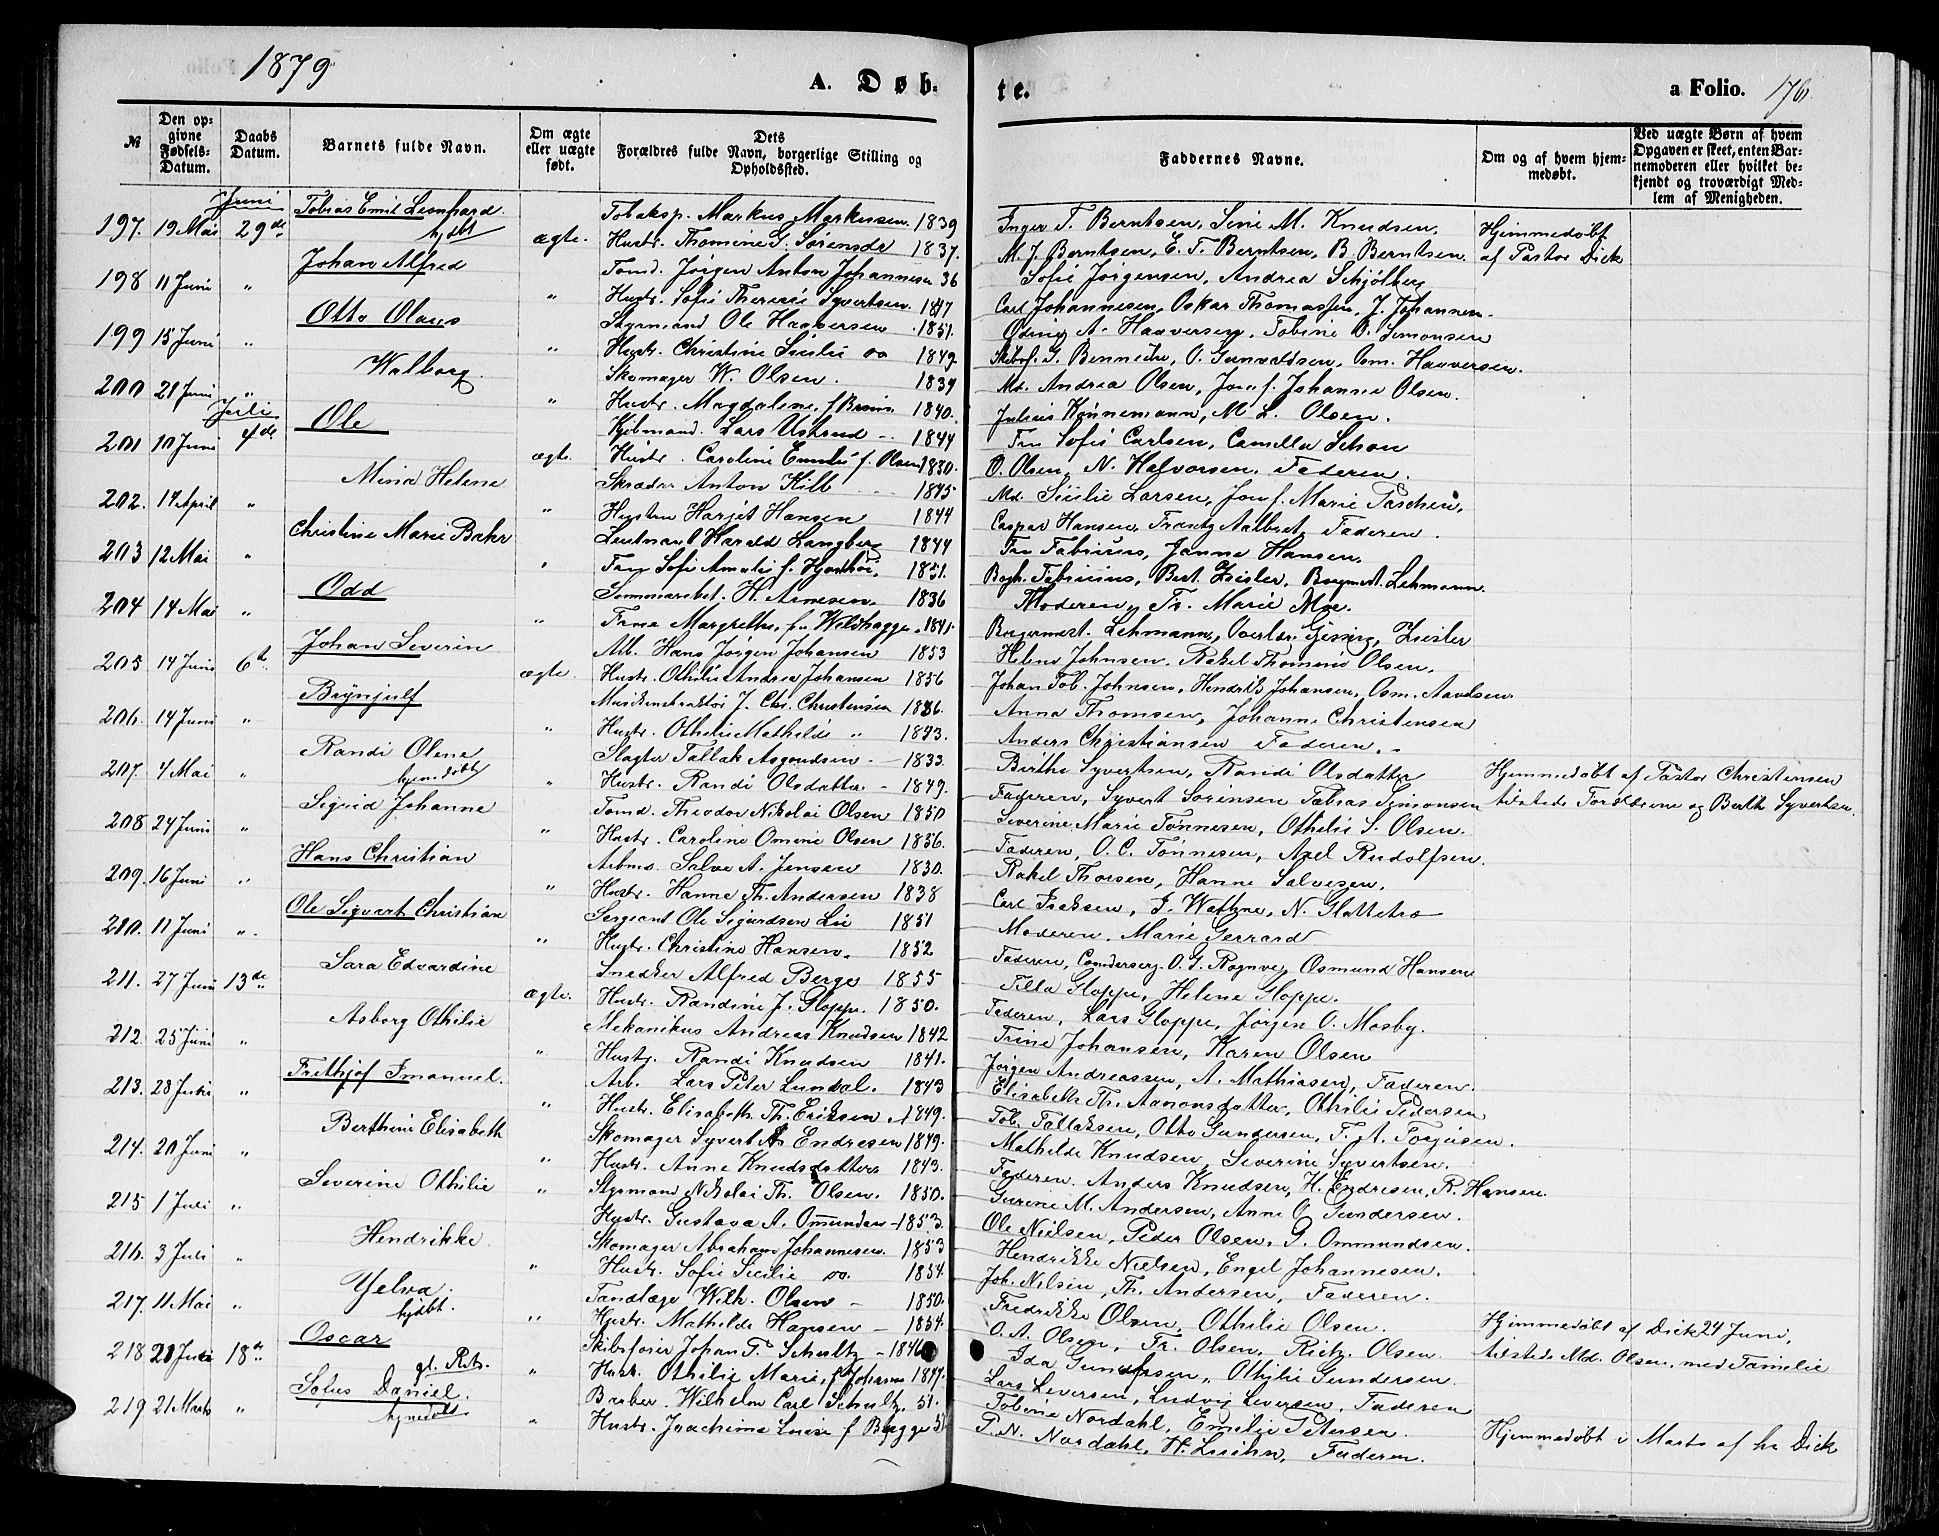 1879
A. Døb-
te.
a Folio. 176.
№
Den opgivne Fødsels-Datum.
Daabs Datum.
Barnets fulde Navn.
Om ægte eller uægte født.
Dets Forældres fulde Navn, borgerlige Stilling og Opholdssted.
Faddernes Navne.
Om og af hvem hjemmedøbt.
Ved uægte Børn af hvem Opgaven er skeet, enten Barnemoderen eller hvilket bekjendt og troværdigt Medlem af Menigheden.
Juni Tobias Emil Leonhard. Tobaksp. Markus Markussen. 1839 Inger T. Berntsen, Sine M. Knudsen, Hjemmedøbt
197. 19 Mai 29de hjdbt ægte. Hustr. Thomine G. Sørensdr 1837. M. J. Berntsen, E. T. Berntsen, B. Berntsen. af Pastor Dick
Johan Alfred Tømd. Jørgen Anton Johannesen 36 Sofie Jørgensen, Andrea Schjølberg
198 11 Juni " " Hustr. Sofie Therese Syvertsen. 1847 Carl Johannesen, Oskar Thomassen, J. Johannesen.
Otto Olaus Styrmand Ole Haaversen 1851. A. Haaversen, Tobine O. Simonsen
199 15 Juni " " Hustr. Christine Sicilie do 1849. G. Benniche, O. Gunvaldsen, Osm. Haaversen.
Walborg. Skomager W. Olsen. 1839 Md. Andrea Olsen, Jomf. Johanne Olsen.
200 21 Juni " " Hustr. Magdalene f. 1840. Julius Kønnemann, M. L. Olsen.
Juli Ole Kjøbmand. Lars Ustrud 1844 Fru Sofie Carlsen, Camilla Schou
201 10 Juni 4de ægte. Hustr. Caroline Emilie f. Olsen 1850. O. Olsen, N. Halvorsen, Faderen.
Mina Helene Skræder Anton Kill 1845 Md. Sicilie Larsen, Jomf. Marie Paschen,
202. 17 April " " Hustru Harjet Hansen 1844 Caspar Hansen, Frantz Aalbret, Faderen.
Christine Marie Bakr Leutnant Harald Langberg 1844 Fru Fabricius, Janna Hansen,
203 12 Mai " " Fru Sofie Amalie f. 1851. Bogh. Fabricius, Bert. Zeisler, Borgmst. Lehmann.
Odd H. Arnesen. 1836 Moderen, Fr. Marie Moe.
204 14 Mai " " Margrethe, f. Wildhagge. 1841. Borgermest. Lehmann, Overlær. Gissing, Zeisler
Johan Severin Arb. Hans Jørgen Johansen 1853 Helene Johnsen, Rakel Thomine Olsen,
205 14 Juni 6te ægte. Hustr. Othilie Andrea Johansen 1856 Johan Tob. Johnsen, Hendrik Johansen, Osm. Aavelsen.
Brynjulf J. Chr. Christensen 1836. Anna Thomsen, Johanne Christensen
206. 14 Juni " " Hustr. Othilie Mathilde " 1843. Anders Christiansen Faderen.
Randi Olene Slagter Tallak Asgoudsen 1833. Birthe Syvertsen, Randi Olsdatter Hjemmedøbt af Pastor Christensen
207. 4 Mai " hjemdøbt " Hustr. Randi Olsdatter 1849. Faderen, Syvert Sørensen Tobias Simonsen tilstede Forældrene og Berth Syvertsen.
Sigrid Johanne Tømd. Theodor Nikolai Olsen 1850 Severine Marie Tønnesen, Othilie S. Olsen.
208 24 Juni " " Hustr. Caroline Omine Olsen 1856. Faderen, O. C. Tønnesen, Axel Rudolfsen.
Hans Christian Arbmd. Salve A. Jensen 1830. Rakel Thorsen, Hanne Salvesen.
209. 16 Juni " " Hustr. Hanne Th. Andersen 1838 Carl Isaksen, J. Wathne, N. Slottebo
Ole Sigvart Christian Sergeant Ole Sigurdsen Lie 1851 Moderen, Marie Gerrard
210. 11 Juni " " Hustr. Christine Hansen. 1852 Faderen, O. G. Rognve, Osmund Hansen
Sara Edvardine Snedker Alfred Berge 1855 Tilla Gloppe, Helene Gloppe.
211. 27 Juni 13de ægte. Hustr. Randine f. Gloppe. 1850. Faderen, Lars Gloppe, Jørgen O. Mosby.
Asborg Othilie Mekanikus Andreas Knudsen 1842 Trine Johansen, Karen Olsen
212. 25 Juni " " Hustr. Randi Knudsen 1841. Jørgen Andreassen, A. Mathiasen, Faderen.
Frithjof Imanuel. Arb. Lars Peter Lundal. 1843 Elisabeth Th. Aanonsdatter, Othilie Pedersen
213. 28 Juni " " Hustr. Elisabeth Th. Eriksen 1849. Tob. Tallaksen, Otto Gundersen, T. A. Torjusen.
Berthine Elisabeth Skomager Syvert A Endresen 1849. Mathilde Knudsen, Severine Syvertsen.
214. 20 Juni " " Hustr. Anne Knudsdatter 1843. Faderen. Anders Knudsen, H. Endresen, R. Hansen.
Severine Othilie Styrmand Nikolai Th. Olsen. 1850. Gurine M. Andersen, Anne O. Gundersen.
215 1 Juli " " Hustr. Gustava A. Omundsen 1853. Ole Nielsen, Peder Olsen, G. Ommundsen.
Hendrikke. Skomager Abraham Johannesen. 1853 Hendrikke Nielsen, Engel Johannesen.
216. 3 Juli " " Hustr. Sofie Sicilie do. 1854. Joh. Nilsen, Th. Andersen, Faderen.
Yelva. Tandlæge Wilh. Olsen 1850. Fredrikke Olsen, Othilie Olsen. Hjemmedøbt af Dick 24 Juni,
217. 11 Mai " hjdbt. " Hustr. Mathilde Hansen 1854. O. A. Olsen, Fr. Olsen, Rich. Olsen. tilstede Md. Olsen, med Familie
Oscar Skibsfører Johan T. Schultz 1846 Ida Gundersen, Othilie Gundersen.
218 21 Juni 18de gl. Reg. " Hustr. Othilie Marie, f. Johanns 1847. Lars Leversen, Ludvig Leversen, Faderen
Sofus Daniel. Barber. Wilhelm Carl Schultz. 51. Tobine Nordahl, Emelie Petersen.
219 21 Marts " hjmdøbt " Hustr. Joachime Luise f Bugge 51 P. N. Nordahl, H. Luihn, Faderen. Hjemmedøbt i Marts af hr Dick